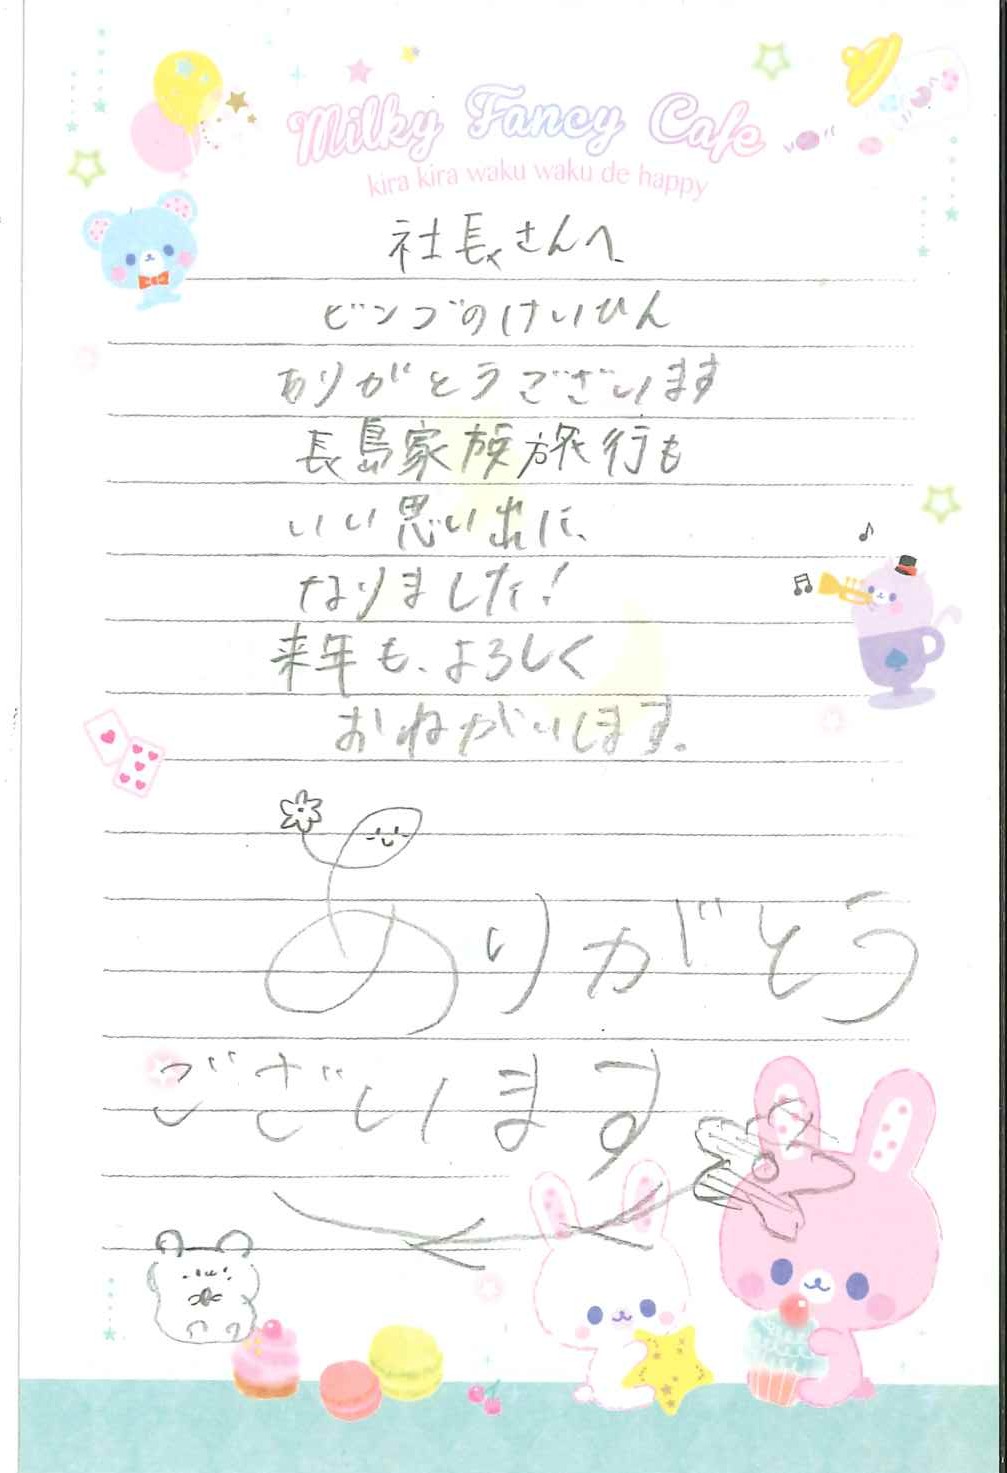 Milky Fancy Cafe
kira kira waku waku de happy
社長さんへ
ビンゴのけいひん
ありがとうございます
長島家族旅行も
いい思い出に、
なりました!
来年も、よろしく
おねがいします。
ありがとう
ございます